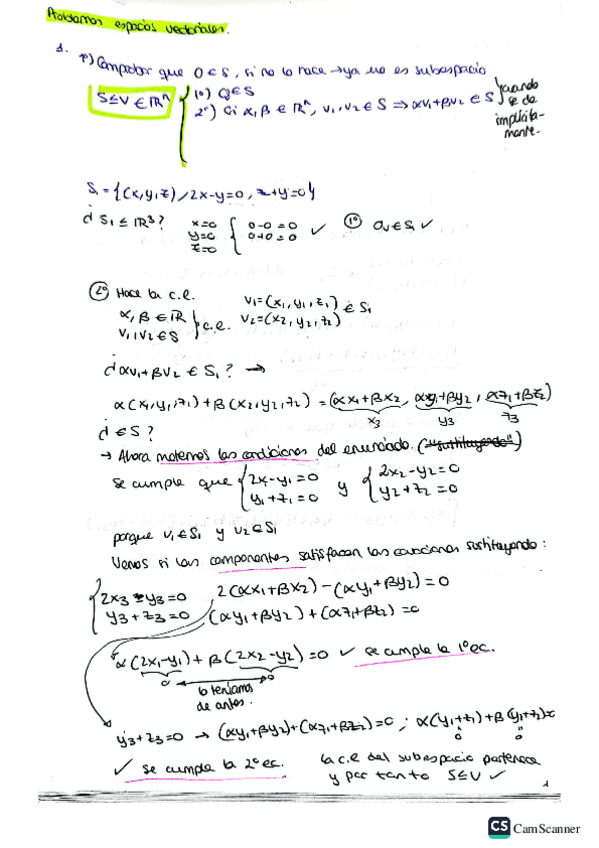 Problemas espacios vectoriales.
1.
1º) Comprobar que 0 ∈ S, si no lo hace → ya no es subespacio
S ≤ V ∈ ℝⁿ { 1º) 0 ∈ S
2º) Si α, β ∈ ℝⁿ, v₁, v₂ ∈ S ⇒ αv₁ + βv₂ ∈ S } cuando se da implícitamente.
S₁ = {(x, y, z) / 2x - y = 0, z + y = 0}
¿S₁ ≤ ℝ³? x=0 y=0 z=0 { 0 - 0 = 0 0 + 0 = 0 ✓ 1º 0ᵥ ∈ S₁ ✓
2º Hace la c.l. v₁ = (x₁, y₁, z₁) v₂ = (x₂, y₂, z₂) } ∈ S₁
α, β ∈ ℝ
v₁, v₂ ∈ S } c.l.
¿αv₁ + βv₂ ∈ S₁? →
α(x₁, y₁, z₁) + β(x₂, y₂, z₂) = (αx₁ + βx₂, αy₁ + βy₂, αz₁ + βz₂)
x₃ y₃ z₃
¿∈ S?
→ Ahora metemos las condiciones del enunciado. ("sustituyendo")
Se cumple que { 2x - y₁ = 0 y₁ + z₁ = 0 y { 2x₂ - y₂ = 0 y₂ + z₂ = 0
porque v₁ ∈ S₁ y v₂ ∈ S₁
Vemos si las componentes satisfacen las ecuaciones sustituyendo:
{ 2x₃ - y₃ = 0 2(αx₁ + βx₂) - (αy₁ + βy₂) = 0
y₃ + z₃ = 0 (αy₁ + βy₂) + (αz₁ + βz₂) = 0
α(2x₁ - y₁) + β(2x₂ - y₂) = 0 ✓ se cumple la 1º ec.
0 0
lo teníamos
de antes.
y₃ + z₃ = 0 → (αy₁ + βy₂) + (αz₁ + βz₂) = 0 ; α(y₁ + z₁) + β(y₁ + z₁) =
0 0
✓ se cumple la 2º ec. la c.l. del subespacio pertenece
y por tanto S ≤ V ✓
1
CS CamScanner